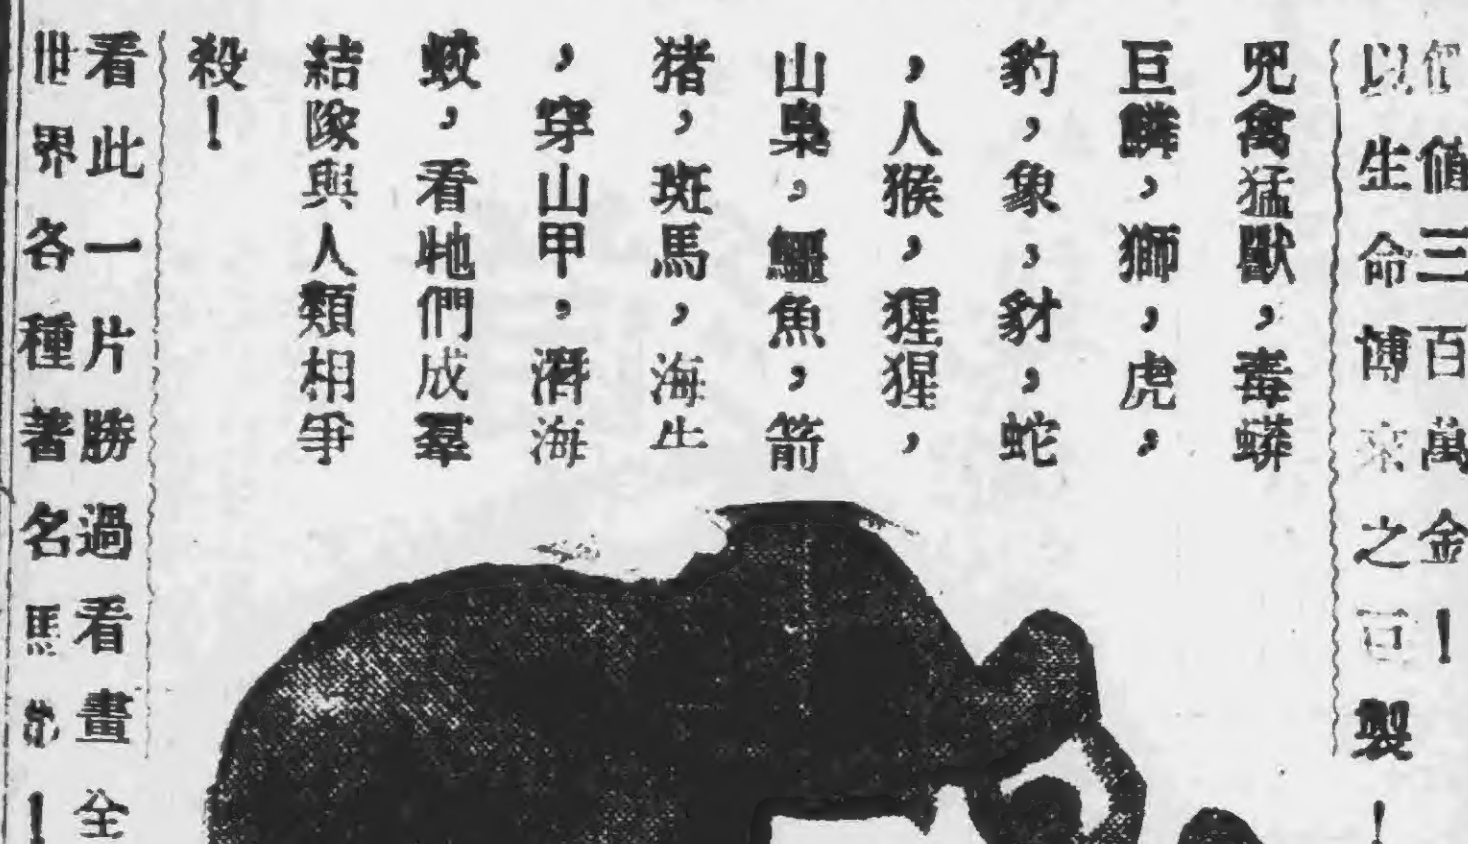 值三百萬金！
以生命博來之巨製！
兇禽猛獸，毒蟒
巨麟，獅，虎，
豹，象，豺，蛇
，人猴，猩猩，
山梟，鱷魚，箭
猪，斑馬，海牛
，穿山甲，潛海
蛟，看牠們成羣
結隊與人類相爭
殺！
看此一片勝過看畫全
世界各種著名馬！